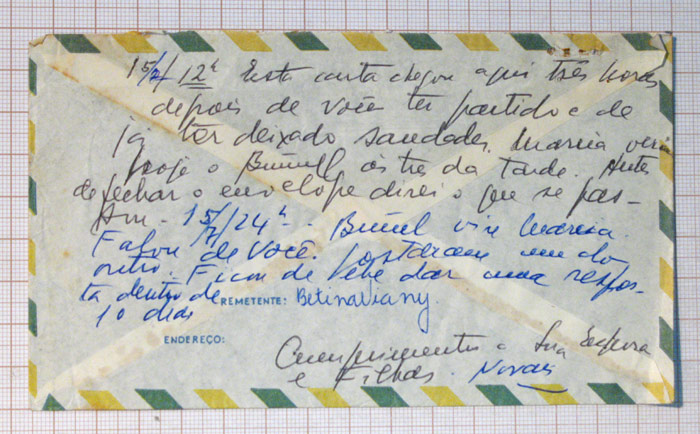 15/7/12h Esta carta chegou aqui três horas
depois de você ter partido e de
já ter deixado saudades. Marcia verá
hoje o Buñuel às tres da tarde. Antes
de fechar o envelope direi o que se pas-
sou. 15/7/24h - Buñuel viu Marcia.
Falou de você. Gostaram um do
outro. Ficou de lhe dar uma respos-
ta dentro de
10 dias
REMETENTE: Betina Viany.
ENDEREÇO:
Cumprimentos a Sua Senhora
e Filhos. Novais